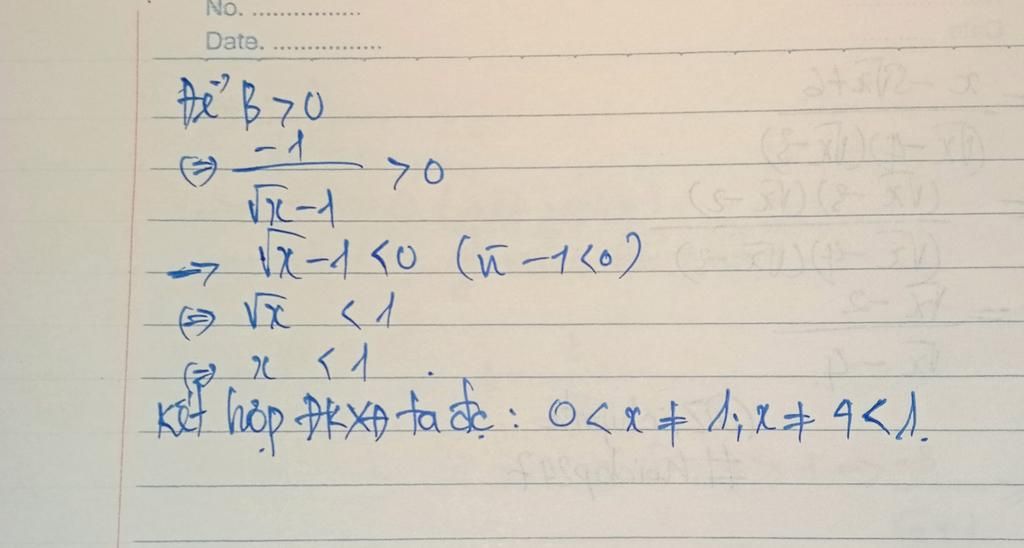 No. ................
Date. ................
Để B > 0
(⇒) -1 / √x - 1 > 0
→ √x - 1 < 0 (vì - 1 < 0)
(⇒) √x < 1
(⇒) x < 1 .
Kết hợp ĐKXĐ ta đc : 0 < x ≠ 1; x ≠ 9 < 1.